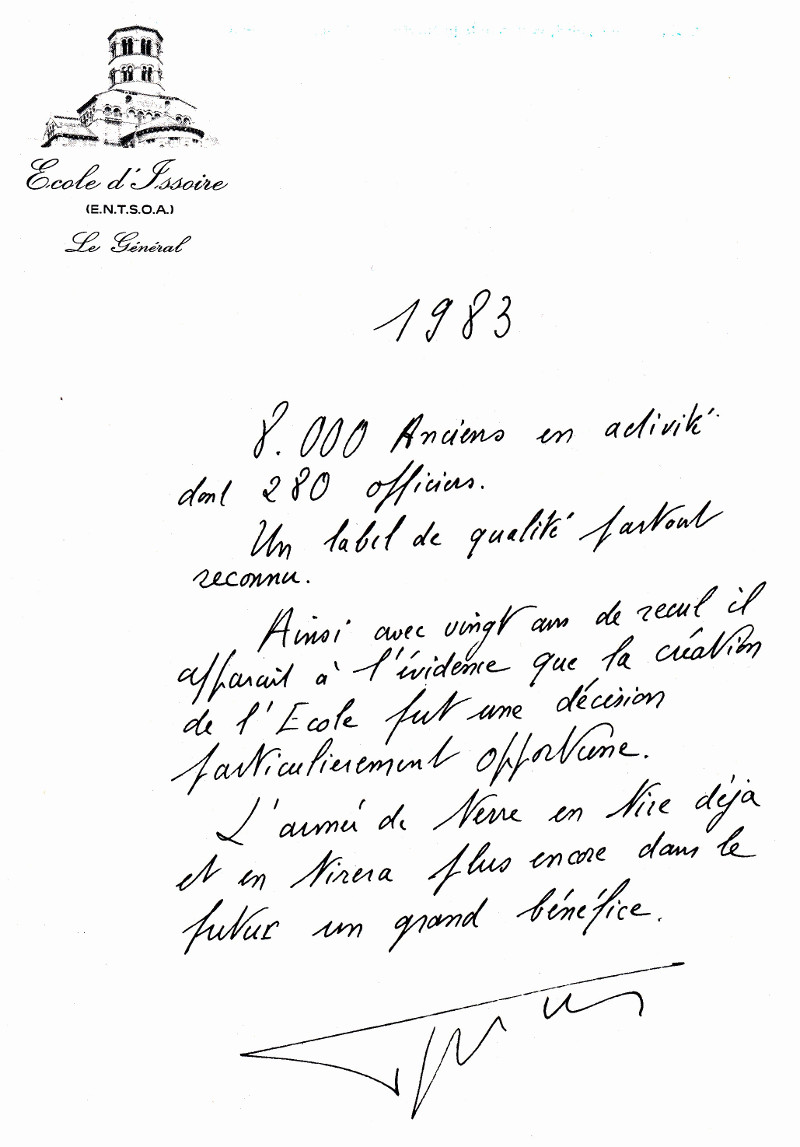 Ecole d'Issoire
(E.N.T.S.O.A.)
Le Général
1983
8.000 Anciens en activité
dont 280 officiers.
Un label de qualité partout
reconnu.
Ainsi avec vingt ans de recul il
apparait à l'évidence que la création
de l'Ecole fut une décision
particulierement opportune.
L'armée de terre en tire déjà
et en tirera plus encore dans le
futur un grand bénéfice.